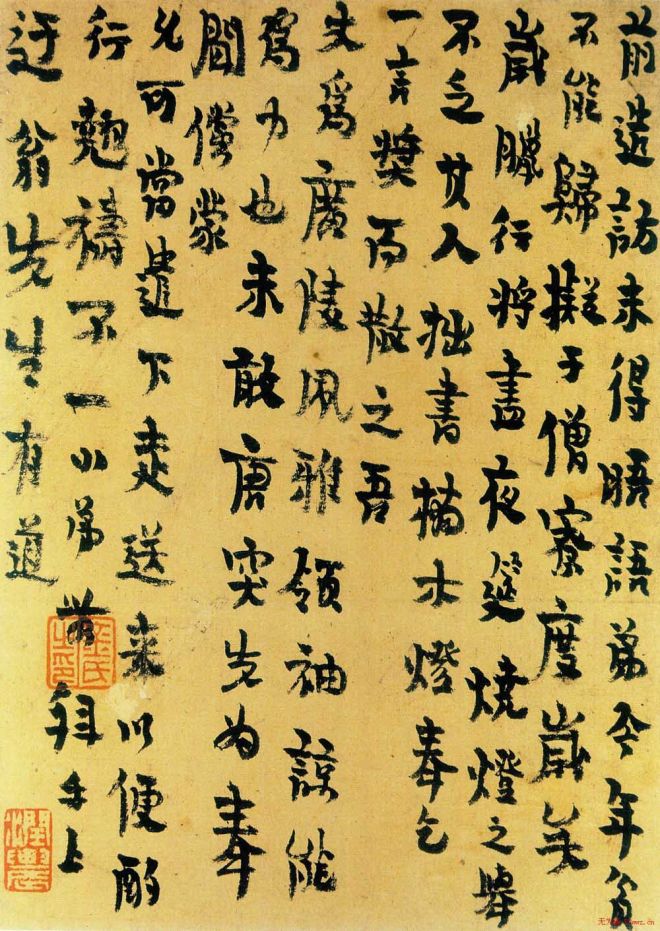 前造訪未得晤語弟今年貧
不能歸擬于僧寮度歲矣
歲臘行將盡夜筵燒燈之舉
不乏其人拙書楠木燈奉乞
一言獎而散之吾
丈爲廣陵風雅領袖諒能
爲力也未敢唐突先为奉
聞儻蒙
允可當遣下走送来以便酌
行禱不一小弟農拜手上
迂翁先生有道
金氏之印